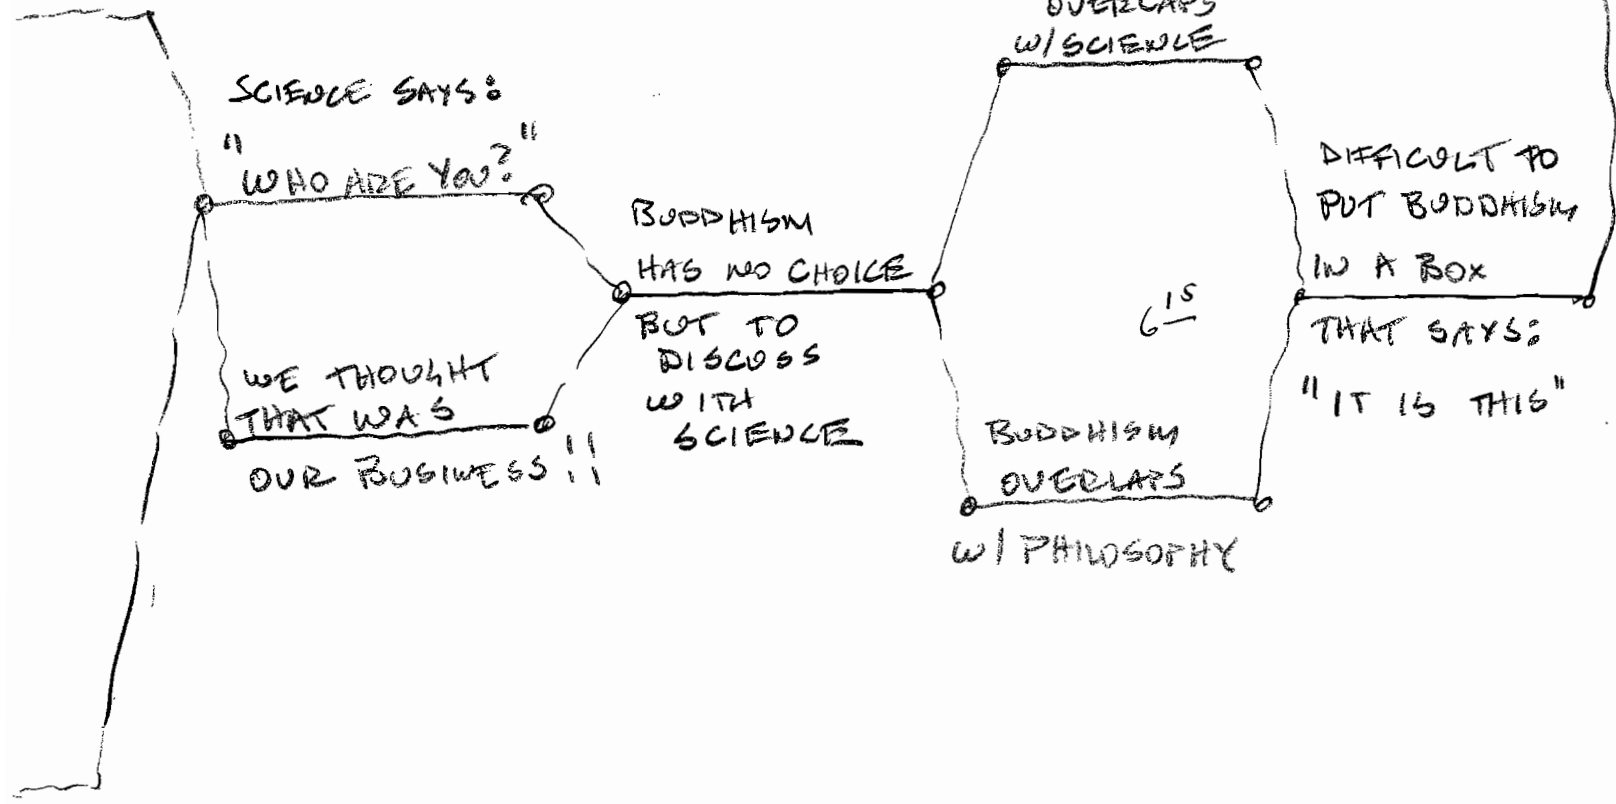 SCIENCE SAYS:
"WHO ARE YOU?"
WE THOUGHT
THAT WAS
OUR BUSINESS!!
BUDDHISM
HAS NO CHOICE
BUT TO
DISCUSS
WITH
SCIENCE
OVERLAPS
W/SCIENCE
6 15
BUDDHISM
OVERLAPS
W/ PHILOSOPHY
DIFFICULT TO
PUT BUDDHISM
IN A BOX
THAT SAYS:
"IT IS THIS"